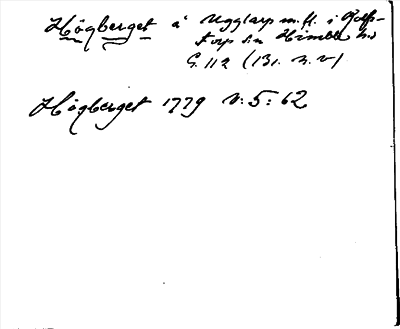 Högberget å Ugglarp m.fl. i Rolfs-
torp sn Himle hd
G. 112 (131. n. v)
Högberget 1779 N: 5: 62